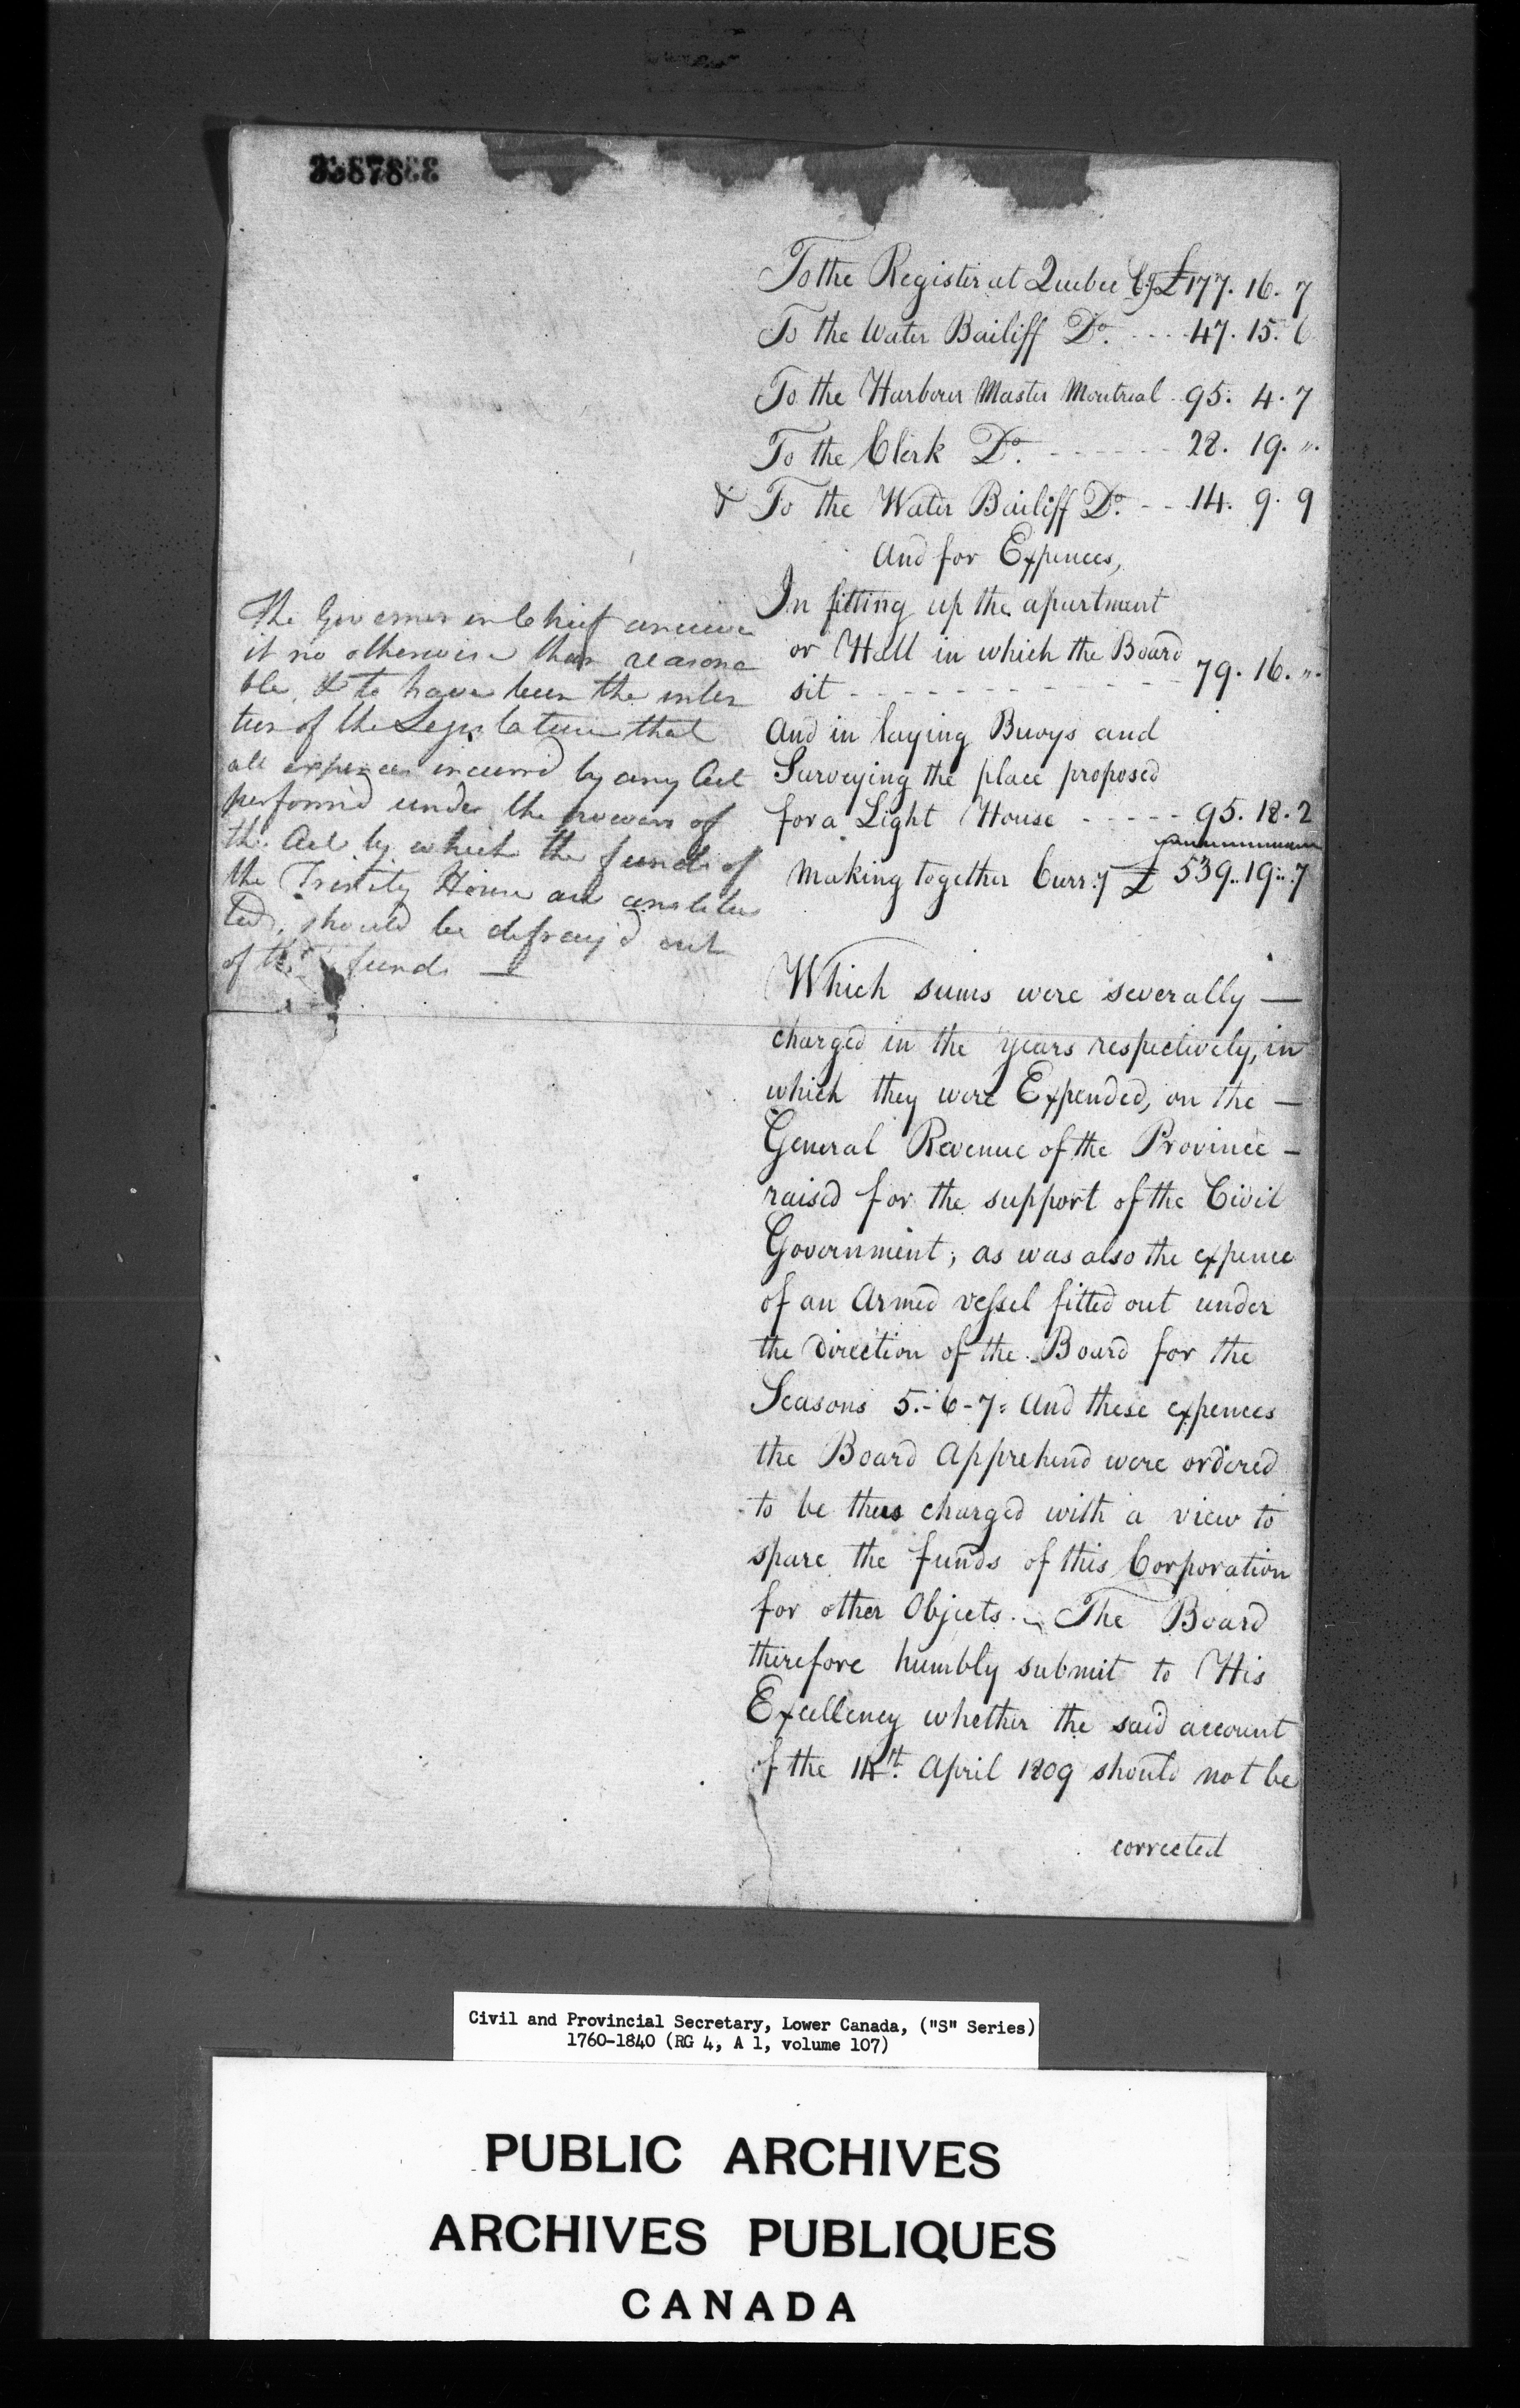 To the Register at Quebec Cy £177. 16. 7
To the Water Bailiff Do. - - - - 47. 15. 6
To the Harbour Master Montreal 95. 4. 7
To the Clerk Do. - - - - - - 28. 19. "
& To the Water Bailiff Do. - - 14. 9. 9
And for Expences,
In fitting up the apartment
or Hall in which the Board
sit - - - - - - - - - - - 79. 16. "
And in laying Buoys and
Surveying the place proposed
for a Light House - - - - - 95. 18. 2
Making together Curr:y £ 539..19..7
The Governor in Chief conceives
it no otherwise than reasona
ble, & to have been the inten
tion of the Legislature that
all expences incurred by any Act
perform'd under the powers of
the Act by which the funds of
the Trinity House are constitu
ted, should be defray'd out
of funds —
Which sums were severally —
charged in the years respectively, in
which they were Expended, on the —
General Revenue of the Province —
raised for the support of the Civil
Government; as was also the expence
of an Armed vessel fitted out under
the Direction of the Board for the
Seasons 5.-6-7: And these expences
the Board Apprehend were ordered
to be thus charged with a view to
spare the funds of this Corporation
for other Objects. — The Board
therefore humbly submit to His
Excellency whether the said account
of the April 1809 should not be
corrected
Civil and Provincial Secretary, Lower Canada, ("S" Series)
1760-1840 (RG 4, A 1, volume 107)
PUBLIC ARCHIVES
ARCHIVES PUBLIQUES
CANADA